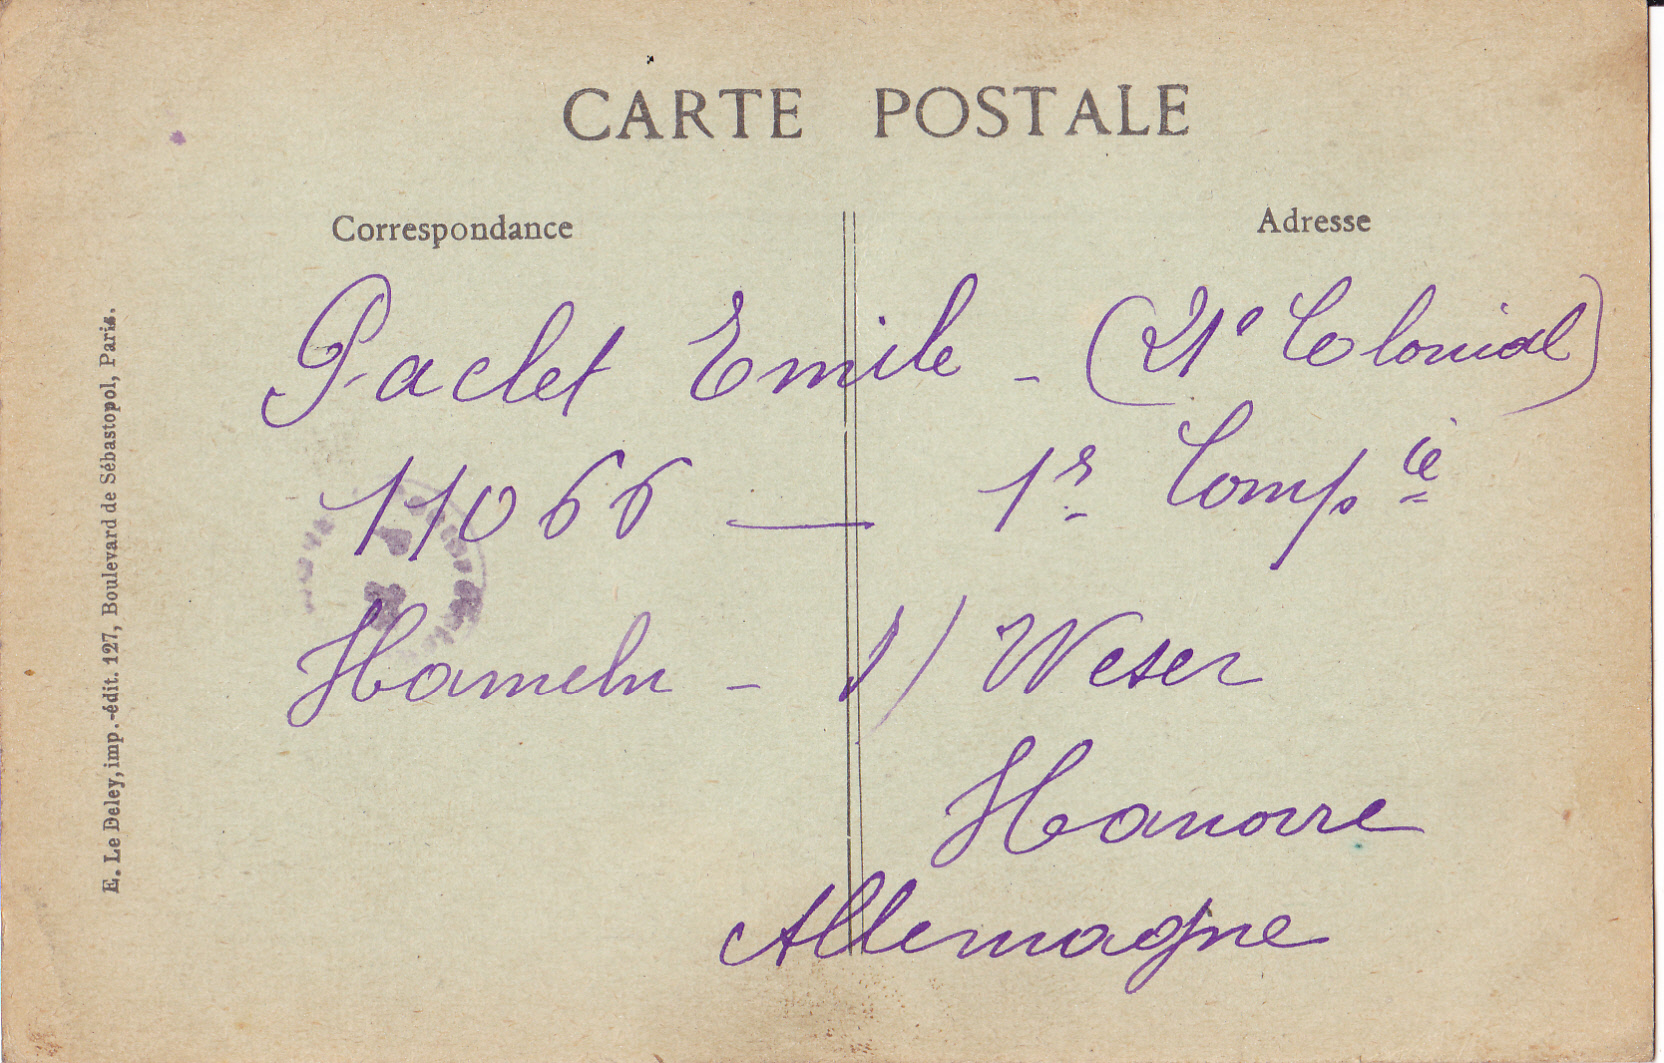 CARTE POSTALE
Correspondance
Adresse
Paclet Emile - (21e Colonial)
11066 — 1r Compie
Hameln - s/ Weser
Hanovre
Allemagne
E. Le Deley, imp.-édit. 127, Boulevard de Sébastopol, Paris.